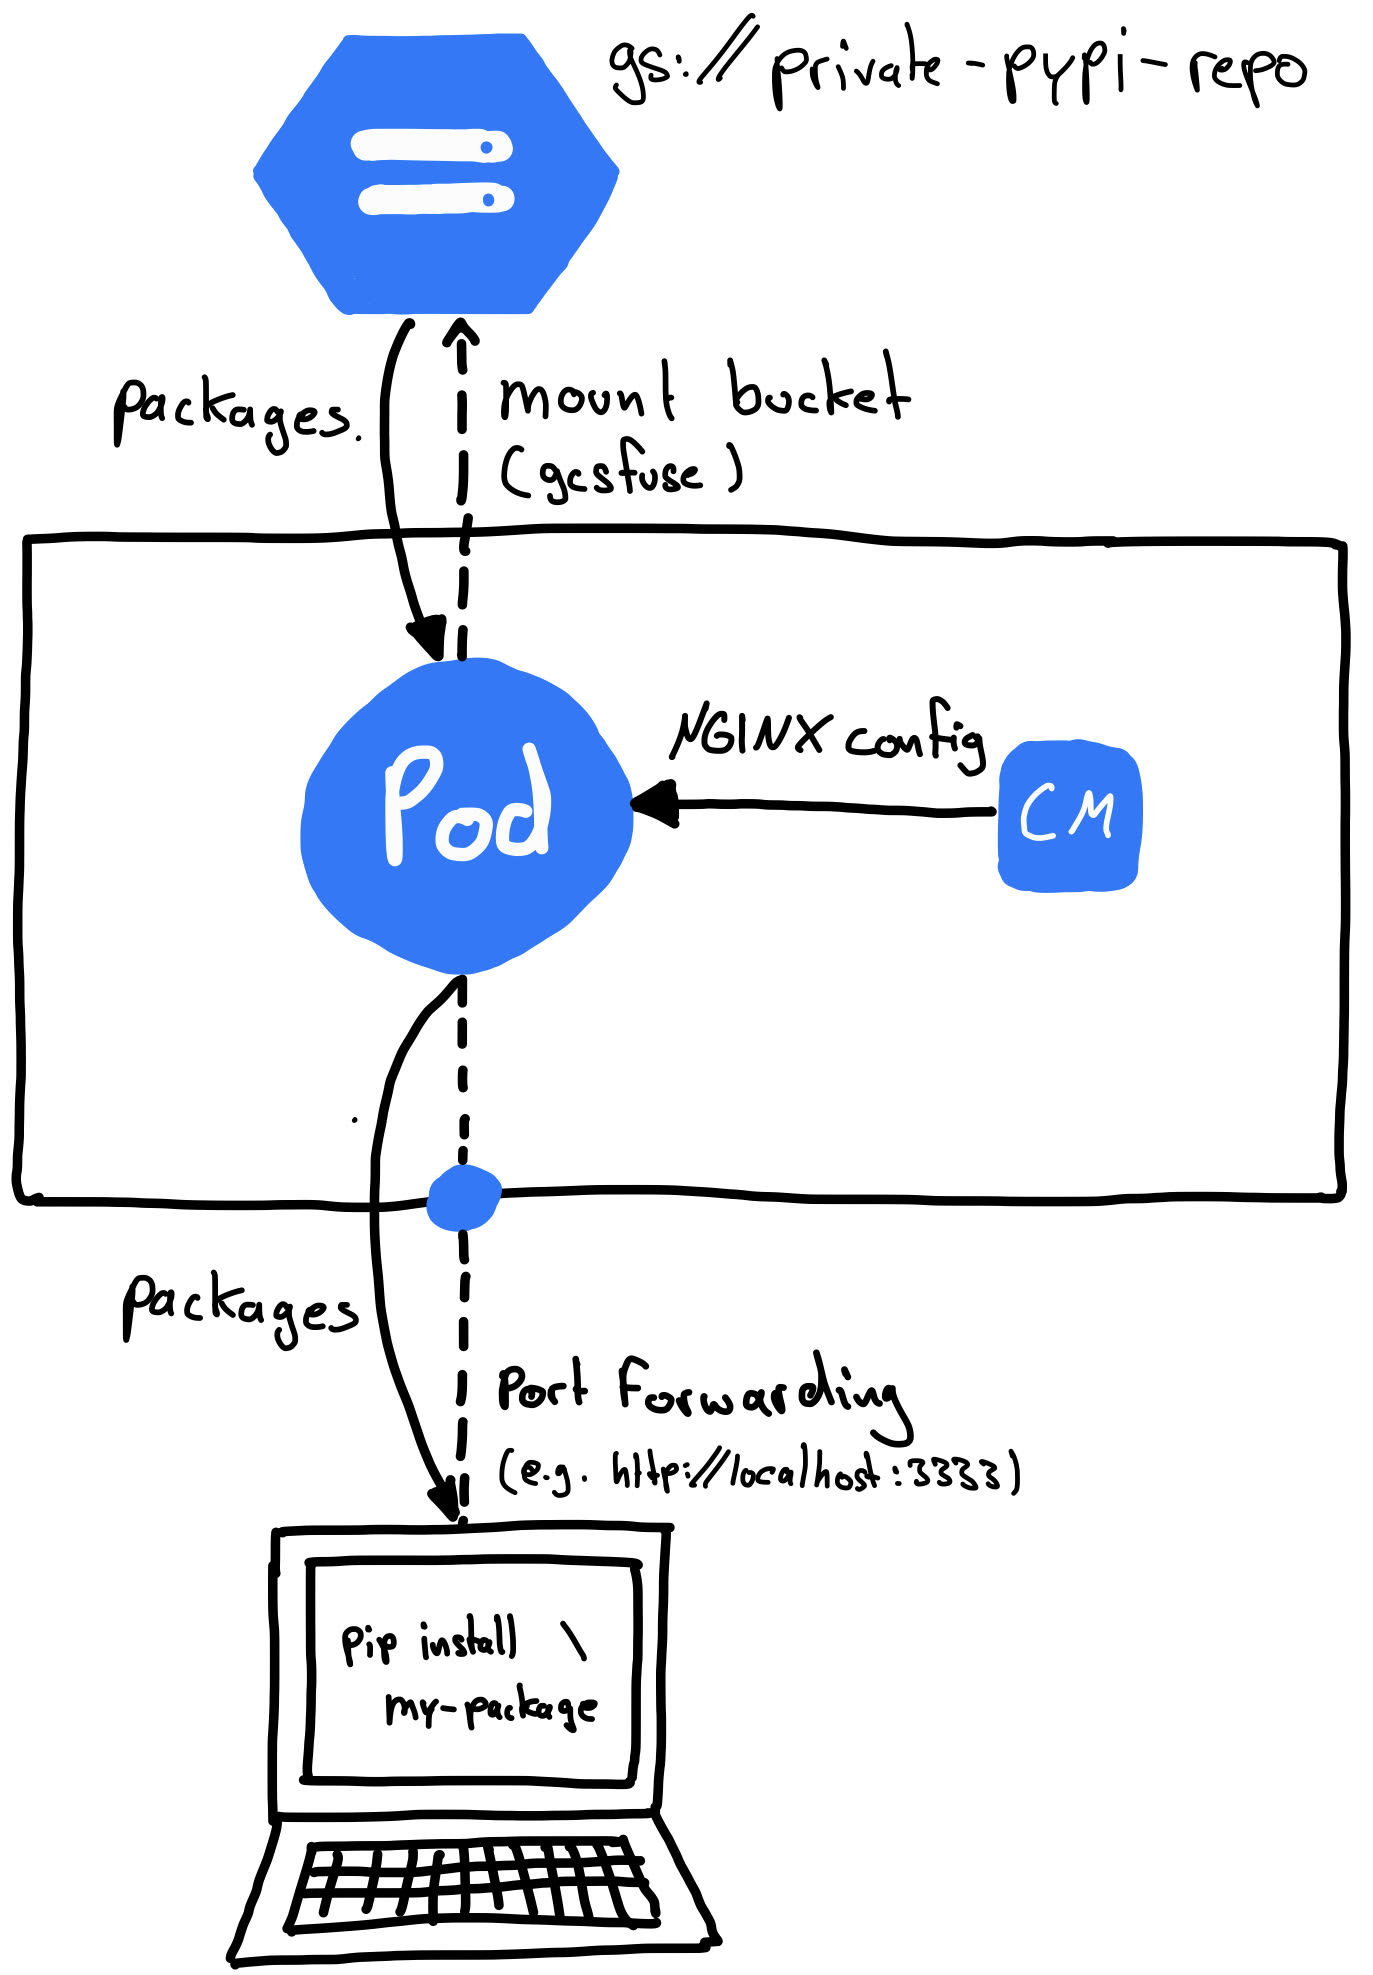 gs://private-pypi-repo
packages.
mount bucket
(gcsfuse)
NGINX config
Pod
CM
packages
Port Forwarding
(e.g. http://localhost:3333)
pip install \
my-package